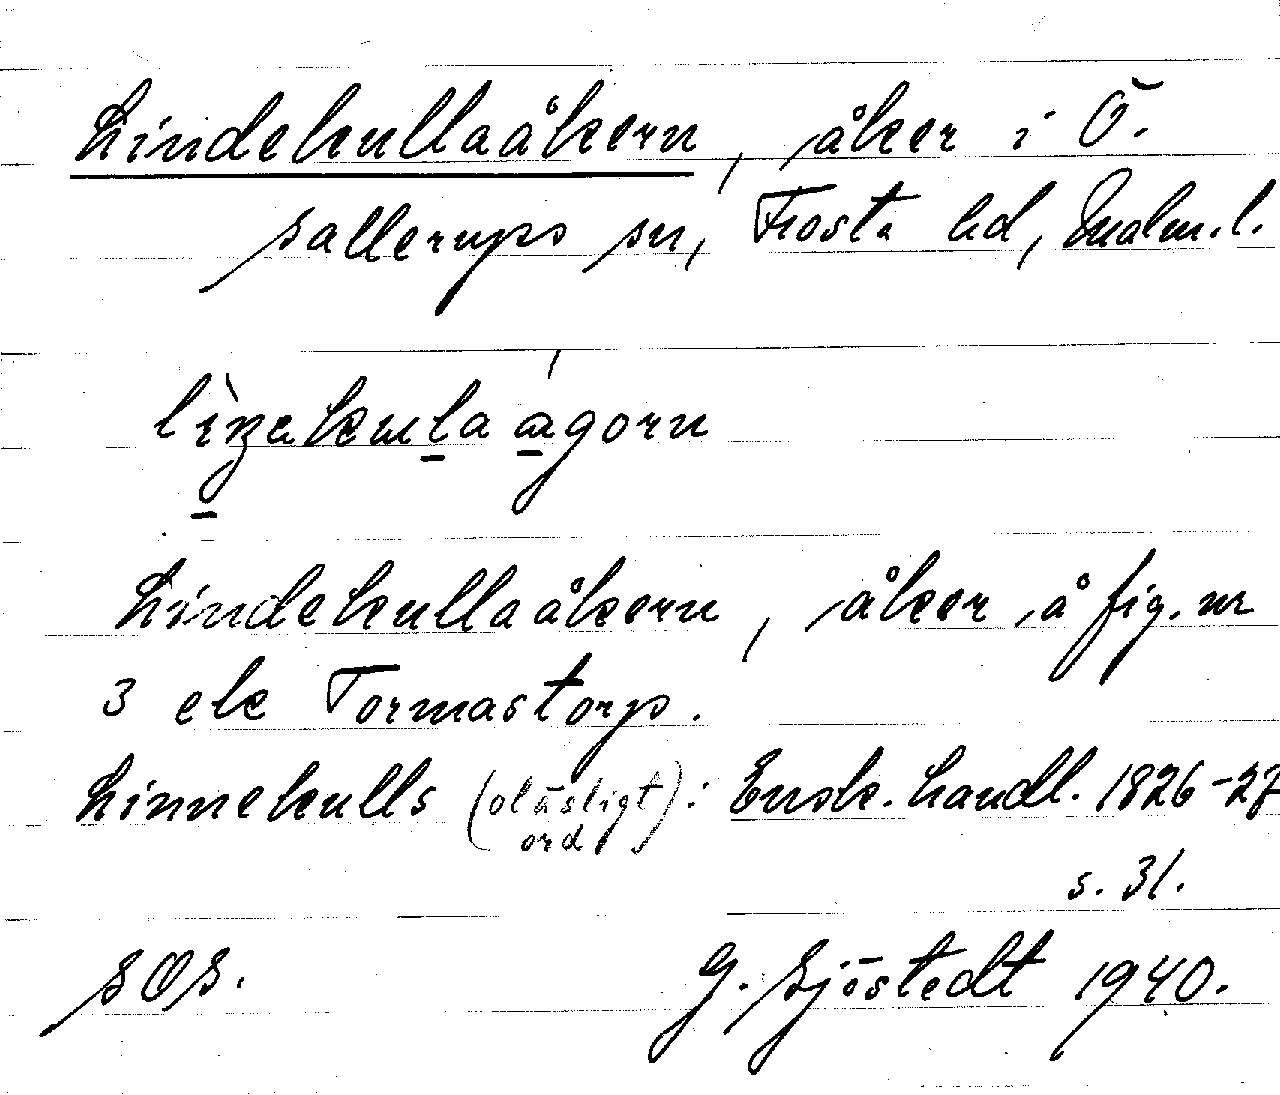 Lindekullaåkern, åker i Ö.
Sallerups sn, Frosta hd, Malm.l.
Lindekullaåkern, åker å fig. nr
3 ek Tormastorp.
Linnekulls (oläsligt ord): Ensk. handl. 1826-27
s. 31.
SOS. G. Sjöstedt 1940.